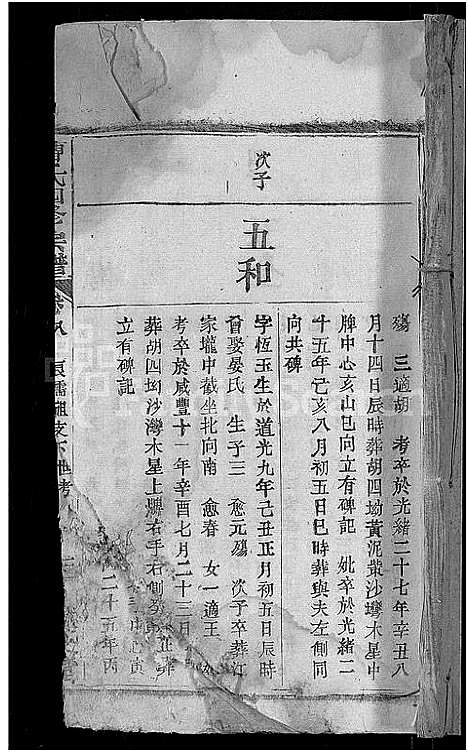 次子
五和
殤　三適胡　考卒於光緒二十七年辛丑八
月十四日辰時葬胡四坳黃泥黃沙灣木星中
脾中心亥山巳向立有碑記　妣卒於光緒二
十五年己亥八月初五日巳時葬與夫左側同
向共碑
字恆玉生於道光九年己丑正月初五日辰時
曾娶晏氏　生子三　愈元殤　次子卒葬江
家壠中截坐北向南　愈春　女一適王
考卒於咸豐十一年辛酉七月二十三日
葬胡四坳沙灣木星上
右手右側
立有碑記
氏四修宗譜
卷八
二十五年丙